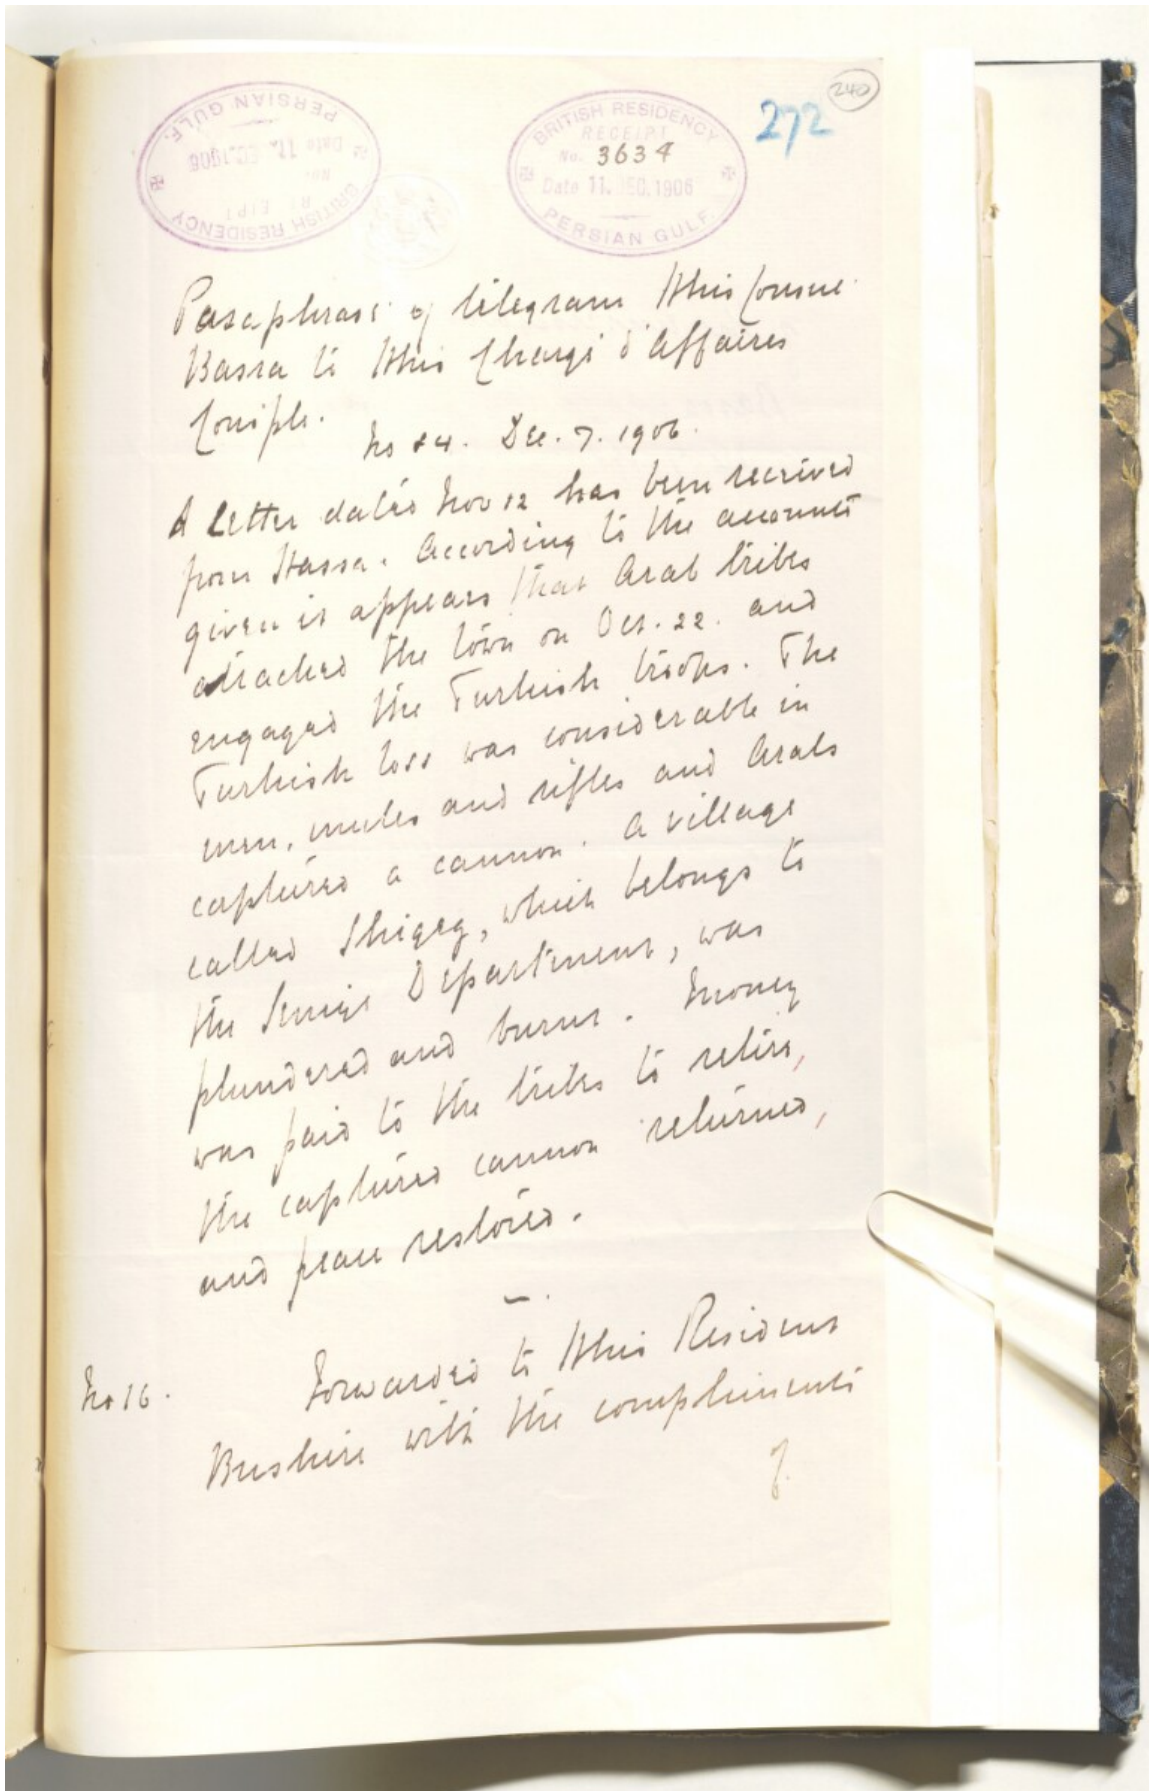 240
272
BRITISH RESIDENCY
RECEIPT
No. 3634
Date 11. DEC. 1906
PERSIAN GULF.
BRITISH RESIDENCY
RECEIPT
No.
Date 11. DEC. 1906
PERSIAN GULF.
Paraphrase of telegram HBMs Consul
Basra to HBMs Chargé d'Affaires
Conple.
No 84. Dec. 7. 1906.
A letter dated Nov 12 has been received
from Hassa. According to the account
given it appears that Arab tribes
attacked the town on Oct. 22. and
engaged the Turkish troops. The
Turkish loss was considerable in
men, mules and rifles and Arabs
captured a cannon. A village
called Shigeg, which belongs to
the Seniye Department, was
plundered and burnt. Money
was paid to the tribes to retire,
the captured cannon returned,
and peace restored.
No 16. Forwarded to HBMs Resident
Bushire with the compliments
of